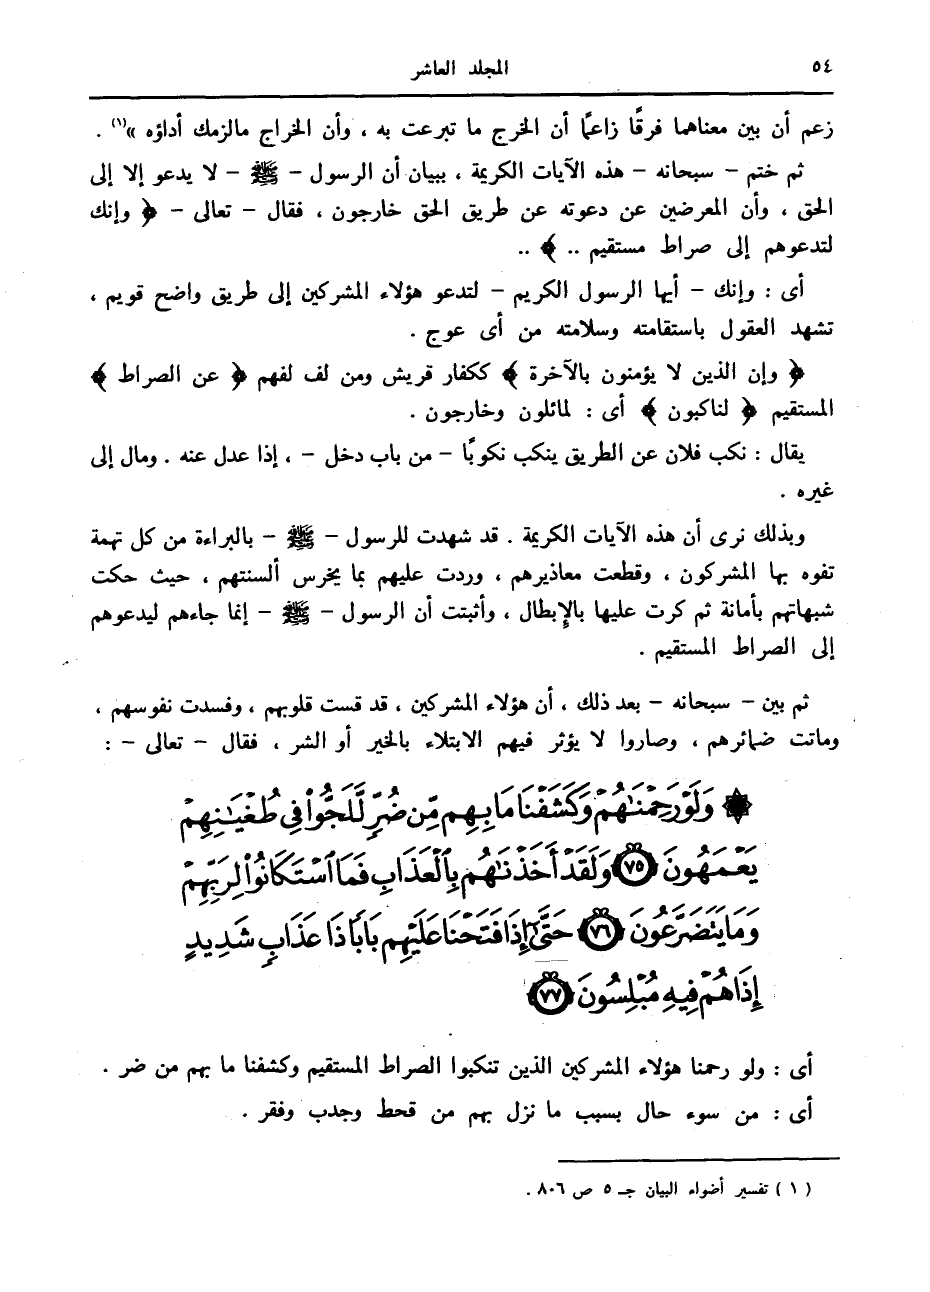 ٥٤ المجلد العاشر
زعم أن بين معناهما فرقًا زاعمًا أن الخرج ما تبرعت به ، وأن الخراج مالزمك أداؤه »(١) .
ثم ختم – سبحانه – هذه الآيات الكريمة ، ببيان أن الرسول – ﷺ – لا يدعو إلا إلى
الحق ، وأن المعرضين عن دعوته عن طريق الحق خارجون ، فقال – تعالى – ﴿ وإنك
لتدعوهم إلى صراط مستقيم .. ﴾ ..
أى : وإنك – أيها الرسول الكريم – لتدعو هؤلاء المشركين إلى طريق واضح قويم ،
تشهد العقول باستقامته وسلامته من أى عوج .
﴿ وإن الذين لا يؤمنون بالآخرة ﴾ ككفار قريش ومن لف لفهم ﴿ عن الصراط ﴾
المستقيم ﴿ لناكبون ﴾ أى : لمائلون وخارجون .
يقال : نكب فلان عن الطريق ينكب نكوبًا – من باب دخل – ، إذا عدل عنه . ومال إلى
غيره .
وبذلك نرى أن هذه الآيات الكريمة . قد شهدت للرسول – ﷺ – بالبراءة من كل تهمة
تفوه بها المشركون ، وقطعت معاذيرهم ، وردت عليهم بما يخرس ألسنتهم ، حيث حكت
شبهاتهم بأمانة ثم كرت عليها بالإبطال ، وأثبتت أن الرسول – ﷺ – إنما جاءهم ليدعوهم
إلى الصراط المستقيم .
ثم بين – سبحانه – بعد ذلك ، أن هؤلاء المشركين ، قد قست قلوبهم ، وفسدت نفوسهم ،
وماتت ضمائرهم ، وصاروا لا يؤثر فيهم الابتلاء بالخير أو الشر ، فقال – تعالى – :
۞ وَلَوْ رَحِمْنَٰهُمْ وَكَشَفْنَا مَا بِهِم مِّن ضُرٍّ لَّلَجُّوا۟ فِى طُغْيَٰنِهِمْ
يَعْمَهُونَ ٧٥ وَلَقَدْ أَخَذْنَٰهُم بِٱلْعَذَابِ فَمَا ٱسْتَكَانُوا۟ لِرَبِّهِمْ
وَمَا يَتَضَرَّعُونَ ٧٦ حَتَّىٰٓ إِذَا فَتَحْنَا عَلَيْهِم بَابًا ذَا عَذَابٍ شَدِيدٍ
إِذَا هُمْ فِيهِ مُبْلِسُونَ ٧٧
أى : ولو رحمنا هؤلاء المشركين الذين تنكبوا الصراط المستقيم وكشفنا ما بهم من ضر .
أى : من سوء حال بسبب ما نزل بهم من قحط وجدب وفقر .
( ١ ) تفسير أضواء البيان جـ ٥ ص ٨٠٦ .